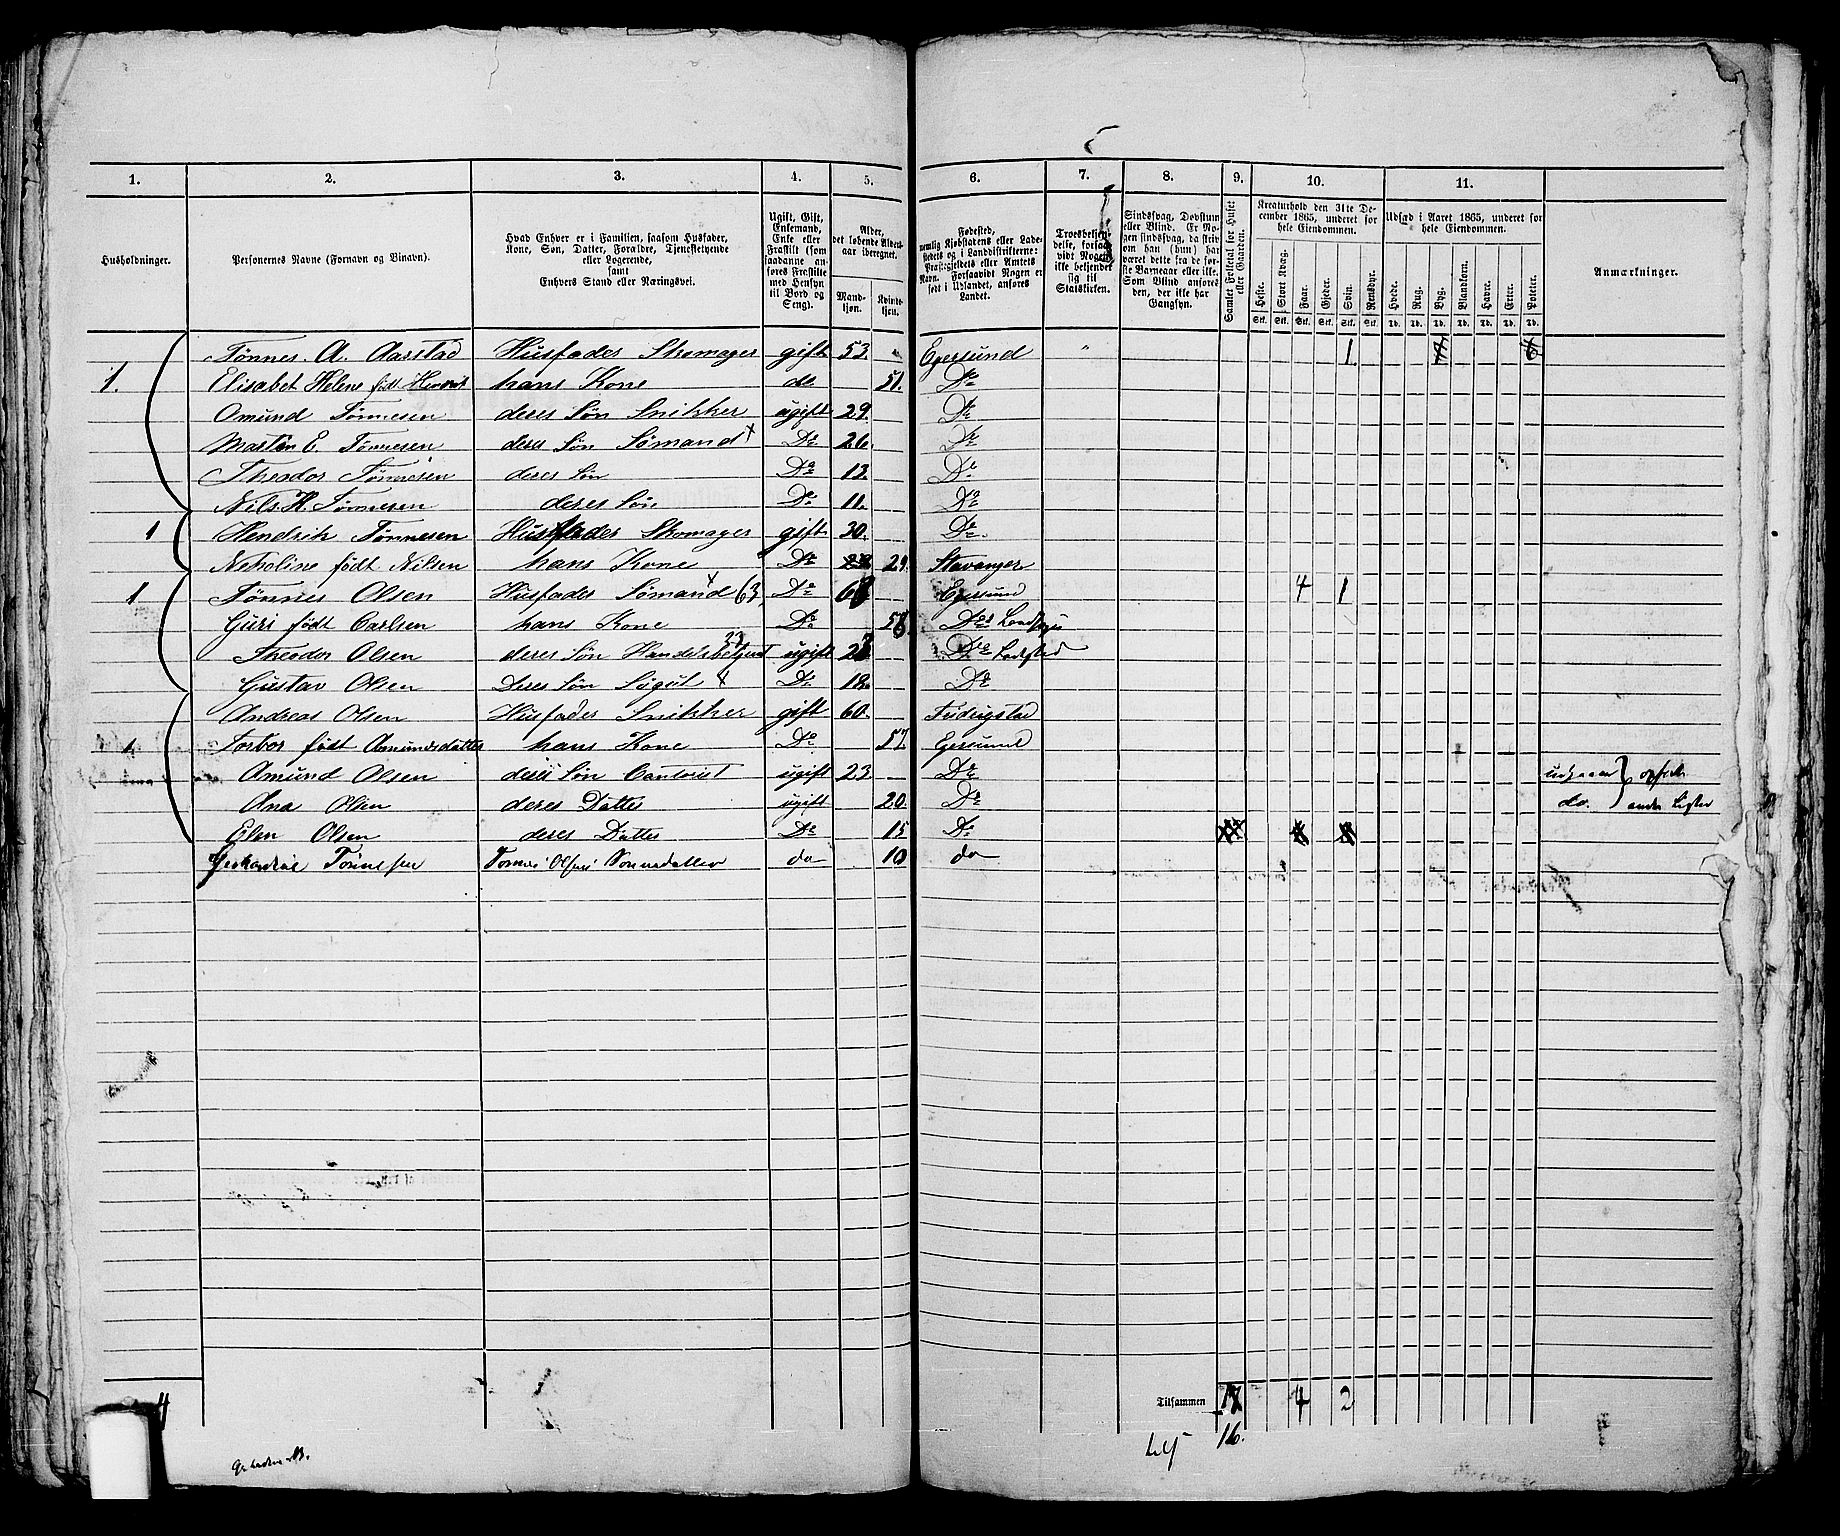 1.
2.
3.
4.
5.
6.
7.
8.
9.
10.
11.
Husholdninger.
Personernes Navne (Fornavn og Binavn).
Hvad Enhver er i Familien, saasom Husfader,
Kone, Søn, Datter, Forældre, Tjenestetyende
eller Logerende,
samt
Enhvers Stand eller Næringsvei.
Ugift, Gift,
Enkemand,
Enke eller
Fraskilt (som
saadanne an-
føres Fraskilte
med Hensyn
til Bord og
Seng).
Alder,
det løbende Alders-
aar iberegnet.
Mand-
kjøn.
Kvinde-
kjøn.
Fødested,
nemlig Kjøbstadens eller Lade-
stedets og i Landdistrikterne:
Præstegjeldets eller Amtets
Navn. Forsaavidt Nogen er
født i Udlandet, anføres
Landet.
Troesbekjen-
delse, forsaa-
vidt Nogen
ikke bekjender
sig til
Statskirken.
Sindssvag, Døvstum
eller Blind. Er No-
gen sindssvag, da skriv
om han (hun) har
været dette fra de før-
ste Barneaar eller ikke.
Som Blind anføres
den, der ikke har
Gangsyn.
Samlet Folketal for Huset
eller Gaarden.
Kreaturhold den 31te De-
cember 1865, underet for
hele Eiendommen.
Heste. Stort Kvæg. Faar. Gjeder. Svin. Rensdyr.
Stk. Stk. Stk. Stk. Stk. Stk.
Udsæd i Aaret 1865, underet for
hele Eiendommen.
Hvede. Rug. Byg. Blandkorn. Havre. Erter. Poteter.
Td. Td. Td. Td. Td. Td. Td.
Anmærkninger.
Tønnes. A. Aarstad Husfader Skomager gift 53. Egersund " 1
1. Elisabet Helene født hans Kone do 51. Do
Omund Tønnesen deres Søn Snikker ugift 29. Do
Martin E. Tønnesen deres Søn Sømand x Do 26. Do
Theodor Tønnesen deres Søn Do 13. Do
Nils. H. Tønnesen deres Søn Do 11. Do
1 Hendrik Tønnesen Husfader Skomager gift 30. Do.
født Nilsen hans Kone Do 29. Stavanger
1 Tønnes Olsen Husfader Sømand x 63. Do Egersund 4 1
Guri født Carlsen hans Kone Do Do
Theodor Olsen deres Søn 23 ugift Do Ladested
Gustav Olsen Deres Søn x Do 18. Do
Andreas Olsen Husfader Snikker gift 60.
1. Torbor født Amundsdatter hans Kone Do 57. Egersund
Amund Olsen deres Søn ugift 23 Do
Ana Olsen deres Datter ugift 20. Do do.
Elen Olsen deres Datter Do 15 Do
Tønnessen Tønnes Olsens Sønnedatter do 10 do
4
Tilsammen 4 2
16.